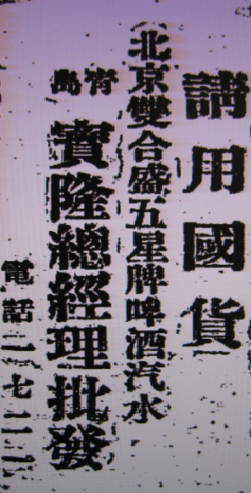 請用國貨
北京雙合盛五星牌啤酒汽水
青島
賓隆總經理批發
電話二七二二